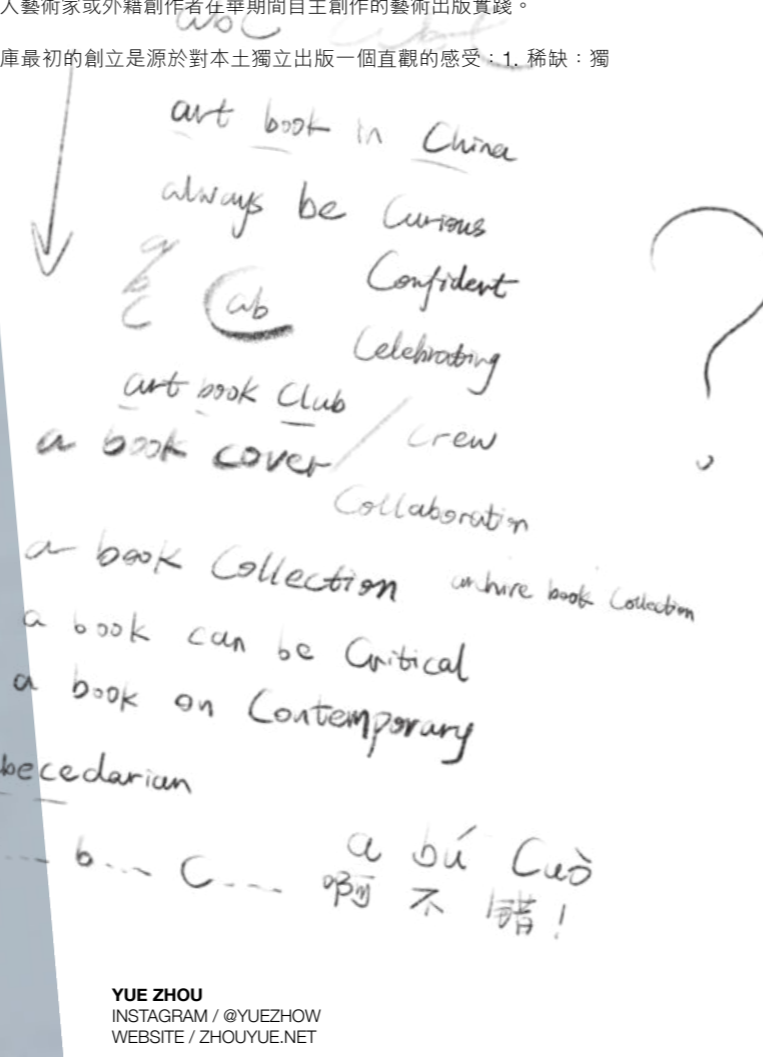 人藝術家或外籍創作者在華期間自主創作的藝術出版實踐。
abc
庫最初的創立是源於對本土獨立出版一個直觀的感受：1. 稀缺：獨
art book in China
always be Curious
a
b
c
Cab
Confident
Celebrating
art book Club
/ Crew
a book cover
Collaboration
a book Collection
book Collection
a book can be Critical
a book on Contemporary
becedarian
... b... C....
a bú Cuò
啊 不 错！
?
YUE ZHOU
INSTAGRAM / @YUEZHOW
WEBSITE / ZHOUYUE.NET